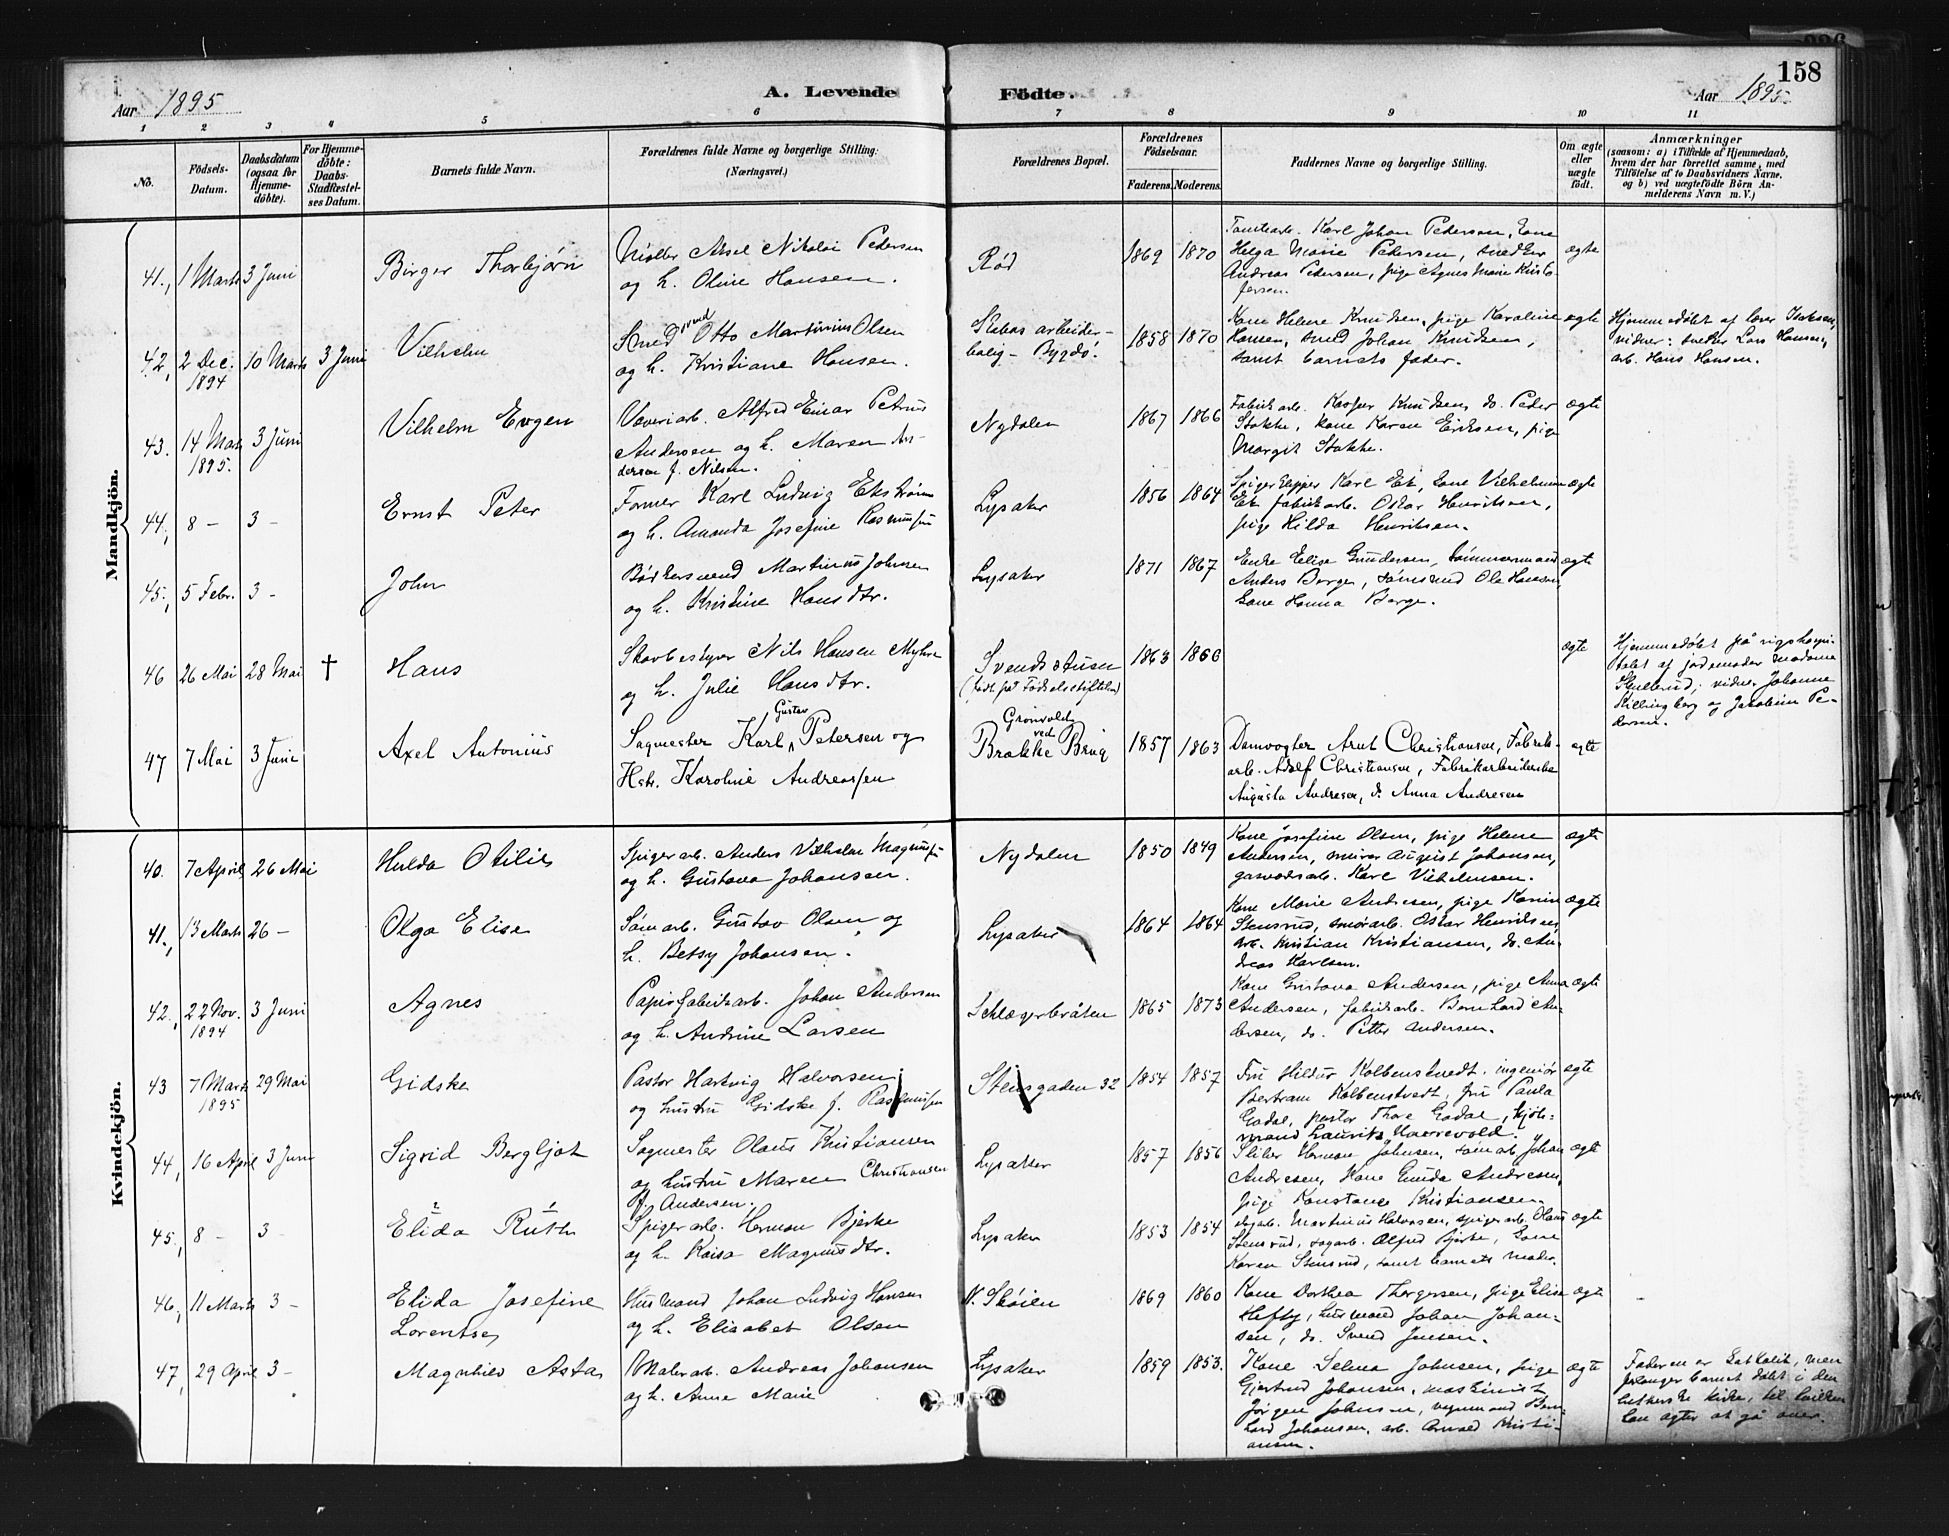 158
Aar 1895
A. Levende Födte.
Aar 1895.
1 2 3 4 5 6 7 8 9 10 11
No.
Födsels-Datum.
Daabsdatum (ogsaa for Hjemme-döbte).
For Hjemme-döbte: Daabs-Stadfæstel-ses Datum.
Barnets fulde Navn.
Forældrenes fulde Navne og borgerlige Stilling: (Næringsvei.)
Forældrenes Bopæl.
Forældrenes Födselsaar.
Faderens. Moderens.
Faddernes Navne og borgerlige Stilling.
Om ægte eller uægte födt.
Anmærkninger
(saasom: a) i Tilfælde af Hjemmedaab, hvem der har forrettet samme, med Tilföielse af to Daabsvidners Navne, og b) ved uægtefödte Börn An-melderens Navn m. V.)
Mandkjön.
41., 1 Marts 3 Juni
Birger Thorbjørn
Møller Aksel Nikolai Pedersen
og h. Oline Hansen.
Rød
1869 1870
Tomtearb. Karl Johan Pedersen, kone
Helga Marie Pedersen, snedker
Andreas Pedersen, pige Agnes Marie
ægte
42, 2 Dec. 1894 10 Marts 3 Juni
Vilhelm
Smedsvend Otto Martinius Olsen
og h. Kristiane Hansen.
arbeider-
bolig - Bygdø.
1858 1870
Kone Helene Knudsen, pige Karoline
Hansen, smed Johan Knudsen,
samt barnets fader.
ægte
Hjemmedøbt af
vidner: snedker Lars Hansen,
arb. Hans Hansen.
43. 14 Marts 1895. 3 Juni
Vilhelm Evgen
Væveriarb. Alfred Einar Petrus
Andersen og h. Maren An-
dersen f. Nilsen.
Nydalen
1867 1866
Fabrikarb. Kasper Knudsen, do. Peder
Stokke, kone Karen Eriksen, pige
Margit Stokke.
ægte
44., 8 - 3 -
Ernst Peter
Former Karl Ludvig Ekstrøm
og h. Amanda Josefine Rasmussen
Lysaker
1856 1864
Spigerklipper Karl Ek, kone Vilhelmine
Ek, fabrikarb. Oskar Henriksen,
pige Hilda Henriksen.
ægte
45., 5 Febr. 3 -
John
Bødkersvend Martinius Johnsen
og h. Kristine Hansdtr.
Lysaker
1871 1867
Enke Elise Gundersen, tømmermand
Anders Borge, Ole Hansen,
kone Hanna Borge.
ægte
46 26 Mai 28 Mai †
Hans
Skovbestyrer Nils Hansen Myhre
og h. Julie Hansdtr.
Svendstuen
(født på Fødselsstiftelsen)
1863 1866
ægte
Hjemmedøbt på rigshospi-
talet af jordemoder madame
vidner Johanne
Killingberg og Jakobine Pe-
dersen.
47 7 Mai 3 Juni
Axel Antonius
Sagmester Karl Gustav Petersen og
Hstr. Karoline Andreassen
Grønvold
ved
Brække Brug
1857 1863
Damvogter Arnt Christiansen, Fabrik-
arb. Adolf Christiansen, Fabrikarbeiderske
Augusta Andresen, d. Anna Andresen
ægte
Kvindekjön.
40. 7 April 26 Mai
Hulda Otilie
Spigerarb. Anders Vilhelm Magnussen
og h. Gustava Johansen.
Nydalen
1850 1849
Kone Josefine Olsen, pige Helene
Andersen, murer August Johansen,
gasværksarb. Karl Vilhelmsen.
ægte
41., 13 Marts 26 -
Olga Elise
Sømarb. Gustav Olsen og
h. Betsy Johansen.
Lysaker
1864 1864
Kone Marie Andresen, pige Karin
Stensrud, smørarb. Oskar Henriksen,
arb. Kristian Kristiansen, do. An-
dreas Karlsen.
ægte
42., 22 Nov. 1894 3 Juni
Agnes
Papirfabrikarb. Johan Andersen
og h. Andrine Larsen
Sklægerbråten
1865 1873
Kone Gustava Andersen, pige Anna
Andersen, fabrikarb. Bernhard An-
dersen, do. Petter Andersen.
ægte
43 7 Marts 1895 29 Mai
Gidske
Pastor Hartvig Halvorsen
og hustru Gidske f. Rasmussen
Stensgaden 32
1854 1857
Fru Hildur Kolbenstvedt, ingeniør
Bertram Kolbenstvedt, fru Paula
Godal, pastor Thore Godal, kjøb-
mand Laurits Haarevold.
ægte
44, 16 April 3 Juni
Sigrid Bergljot
Sagmester Olaus Kristiansen
og hustru Maren Christiansen
f. Andersen.
Lysaker
1857 1856
Sliber Herman Johnsen, sømarb. Johan
Andresen, kone Gunda Andresen,
pige Konstance Kristiansen.
ægte
45., 8 - 3 -
2 1
Elida Ruth
Spigerarb. Herman Bjerke
og h. Kaisa Magnusdtr.
Lysaker
1853 1854
Martinius Halvorsen, spigerarb. Olaus
Stensrud, sagarb. Alfred Bjerke, kone
Karen Stensrud, samt barnets moder.
ægte
46., 11 Marts 3 -
Elida Josefine
Lorentse
Husmand Johan Ludvig Hansen
og h. Elisabet Olsen
N. Skøien
1869 1860
Kone Dorthea Thorgersen, pige Elise
Hefty, husmand Johan Johan-
sen, do. Svend Jensen.
ægte
47, 29 April 3 -
Magnhild Asta
Malerarb. Andreas Johansen
og h. Anne Marie
Lysaker
1859 1853.
Kone Selma Johnsen, pige
Gjertrud Johansen, maskinist
Jørgen Johnsen, vognmand Bern-
hard Johansen, arb. Arnold Kristi-
ansen.
ægte
Faderen er katholik, men
forlanger barnet døbt i den
lutherske kirke, til hvilken
han agter at gå over.